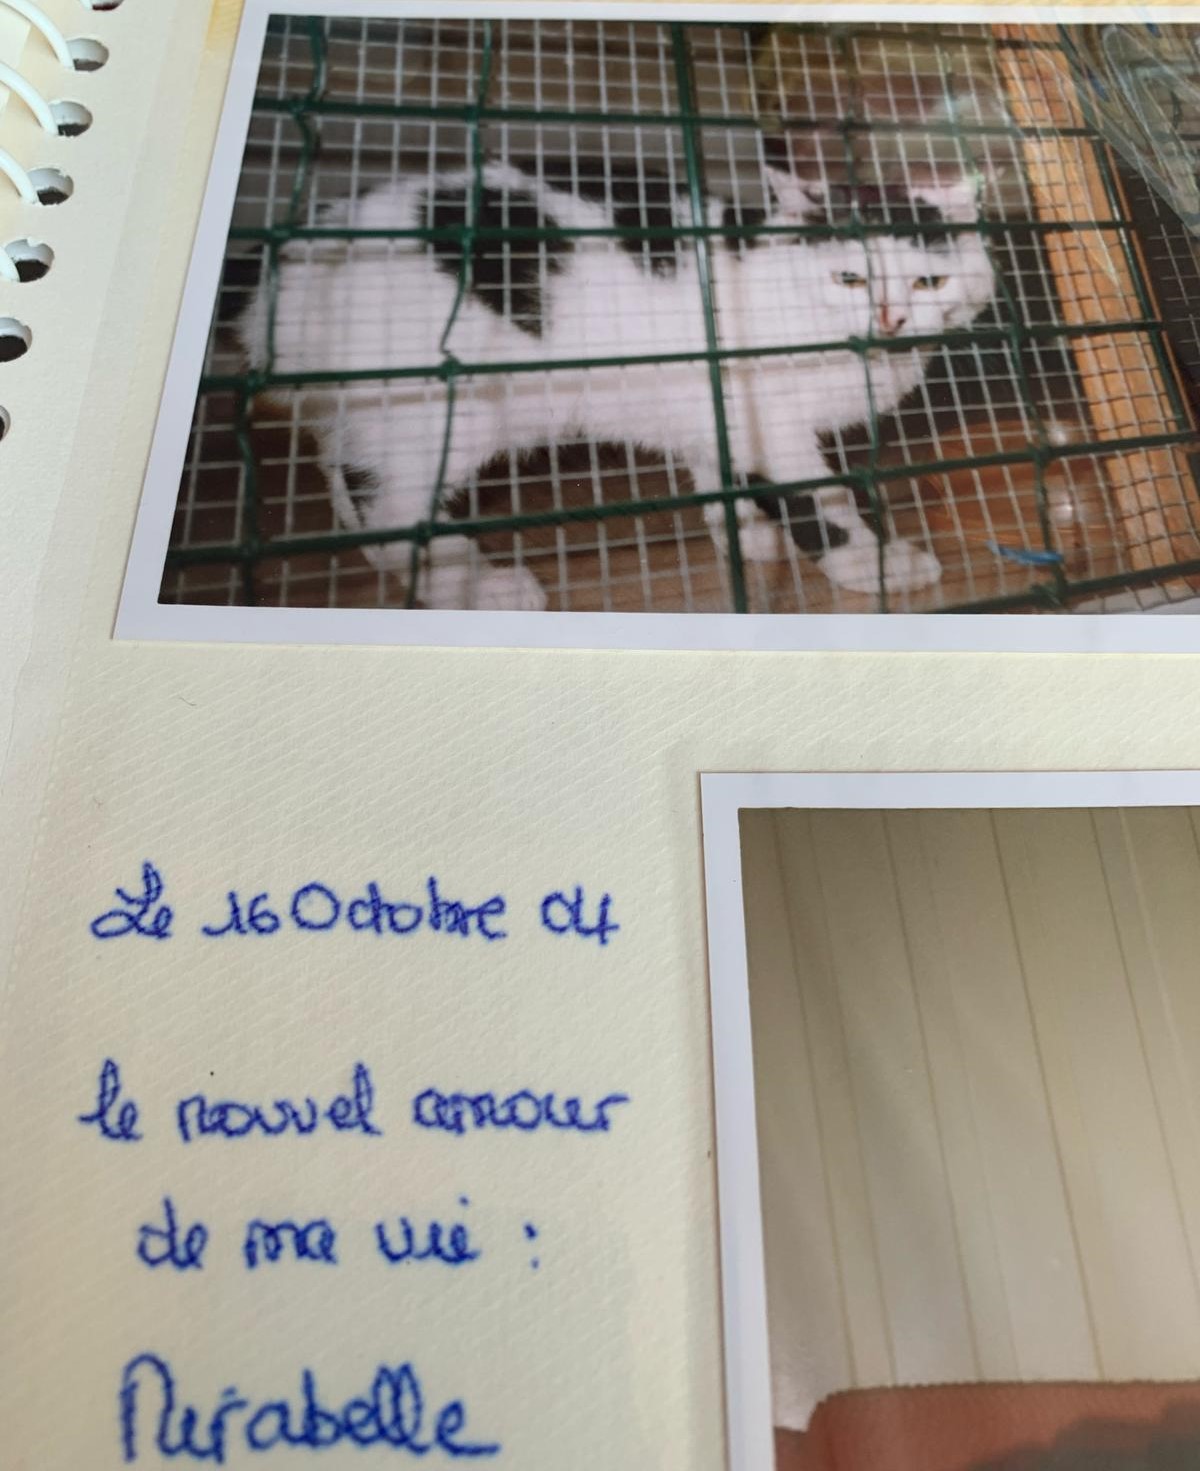 Le 16 Octobre 04
le nouvel amour
de ma vie :
Mirabelle